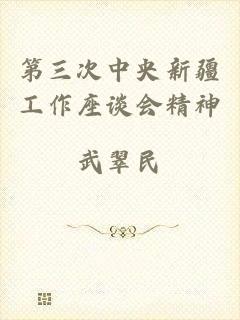 第三次中央新疆
工作座谈会精神
武翠民